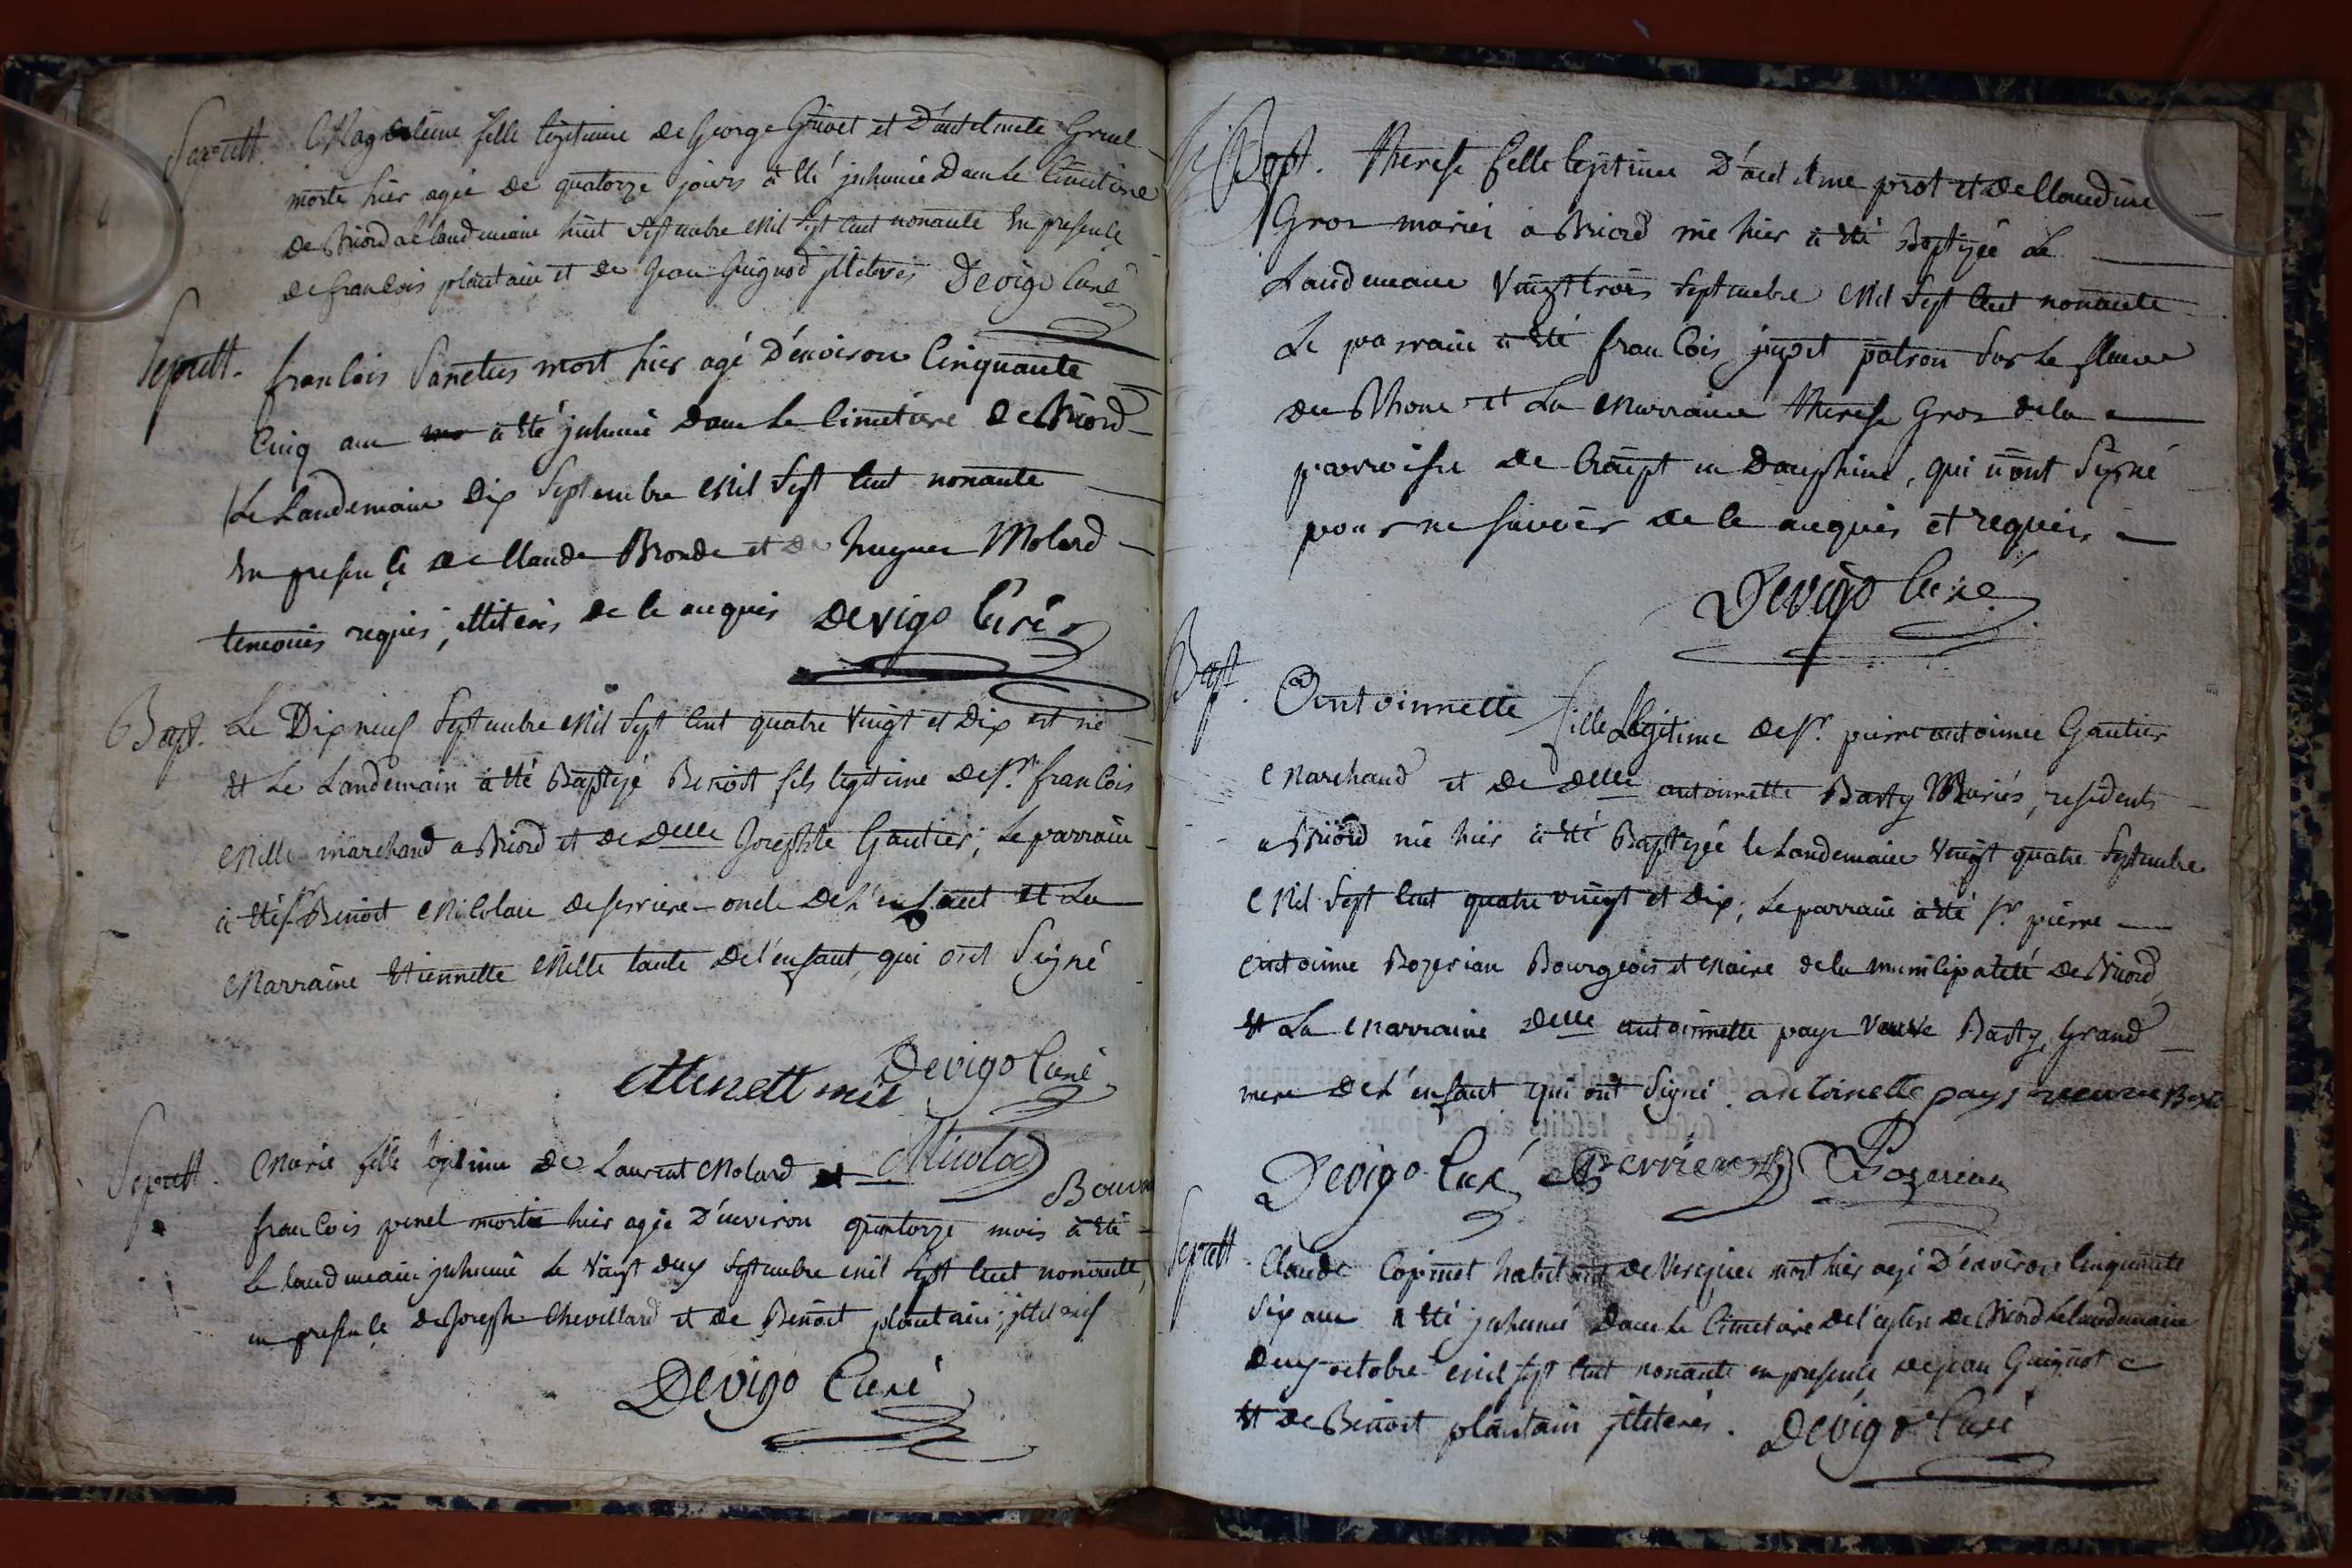 Sepult. Magdeleine fille legitime de George Grivet et D'antelmete Gruel
morte hier agée de quatorze jours à été jnhumée Dans le Cimetiere
de Briord le landemaine huit Septembre Mil Sept Cent nonante En presence
de francois plantain et de Jean Guignod jlliterés Devigo Curé
Sepult. francois Sanctus mort hier agé D'environ Cinquante
Cinq ans à été jnhumé Dans le Cimetiere de Briord
Le Landemaine Dix Septembre Mil Sept Cent nonante
En presence de Claude Bronde et De hugues Molard
temoins requis, jlliterés de ce enquis Devigo Curé
Bapt. Le Dix neuf Septembre Mil Sept Cent quatre Vingt et Dix est né
Et Le Landemain à été Baptizé Benoit fils legitime de Sr. francois
Mille marchand a Briord et de Delle Josephte Gautier; Le parrain
à été Sr Benoit Micolaie de serriere oncle de L'enfant et La
Marraine Etiennette Mille tante de l'enfant, qui ont Signé
Devigo Curé
Sepult. Marie fille legitime de Laurent Molard et
francois penel morte hier agée D'environ quatorze mois à été
le landemain jnhumé le Vingt deux Septembre mil Sept Cent nonante,
en presence de Joseph Chevillard et de Benoit plantain; jlliterés
Devigo Curé
Bapt. Therese fille legitime D'antelme prot et de Claudine
Gros mariés a Briord née hier à été Baptizée Le
Landemaine Vingt trois Septembre Mil Sept Cent nonante
Le parrain à été francois juget patron Sur Le fleuve
du Rhone et La Marraine Therese Gros de la
parroisse de Creupt en Dauphiné, qui n'ont Signé
pour ne Savoir de ce enquis et requis
Devigo Curé
Bapt. Antoinnette fille Legitime de Sr. pierre antoinne Gautier
Marchand et de Delle antoinnette Basty Mariés, residents
a Briord née hier à été Baptizée le Landemaine Vingt quatre Septembre
Mil Sept Cent quatre vingt et Dix; Le parrain à été Sr. pierre
antoinne Bozerian Bourgeois et Maire de la municipalité de Briord
Et La Marraine Delle antoinnette pays Veuve Basty, grand
mere de L'enfant qui ont Signé. antoinette pays veuve
Devigo Curé Bozerian
Sepult. Claude Copinet habitant de Verizieu mort hier agé D'environ Cinquante
Six ans a été jnhumé Dans le Cimetiere de l'eglise de Briord le landemaine
deux octobre mil sept Cent nonante en presence de jean Guignot
Et de Benoit plantain jlliterés. Devigo Curé